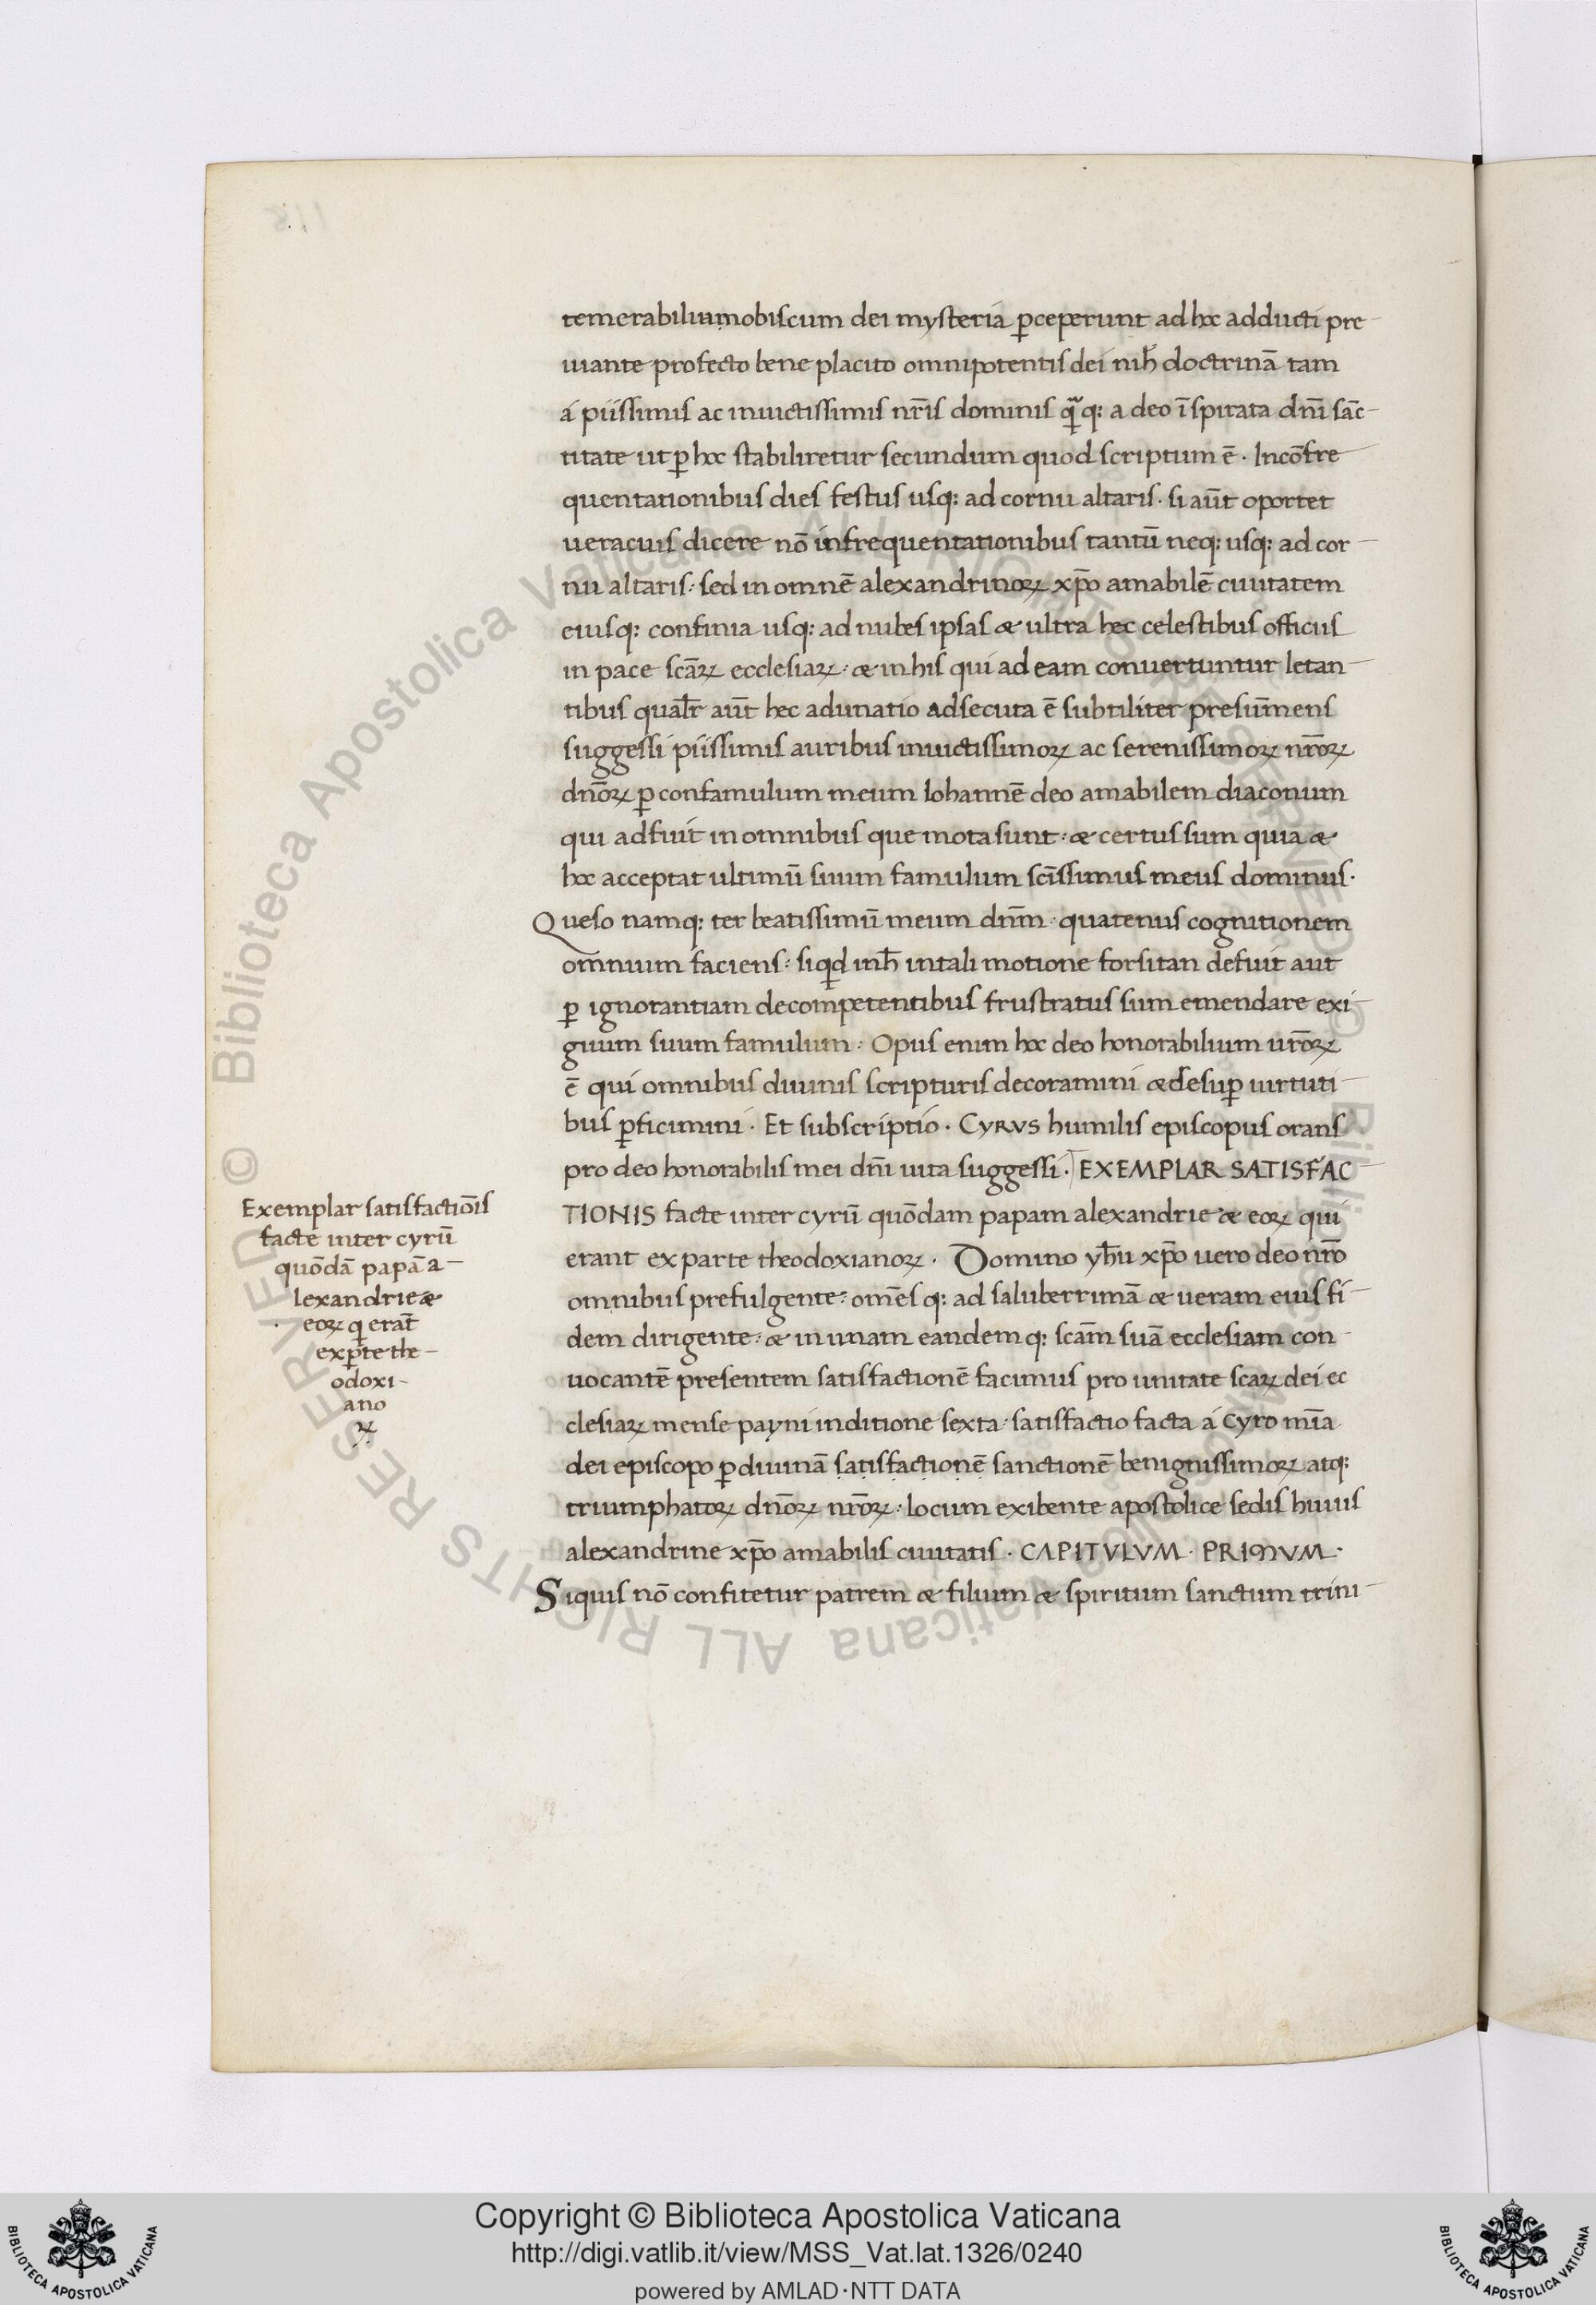 temerabilium nobiscum dei mysteria p̄ceperunt ad hoc adducti pre-
uiante profecto bene placito omnipotentis dei nih̄ doctrinā tam
á piissimis ac inuictissimis nr̄is dominis q̄q: a deo īspirata dn̄i sāc-
titate ut p̄ hoc stabiliretur secundum quod scriptum ē · In cōfre
quentationibus dies festus usq: ad cornu altaris · si aūt oportet
ueracius dicere nō in frequentationibus tantū neq: usq: ad cor-
nu altaris: sed in omnē alexandrinoꝝ xp̄o amabilē ciuitatem
eiusq: confinia usq: ad nubes ipsas & ultra hec celestibus officiis
in pace scāꝝ ecclesiaꝝ: & in his qui ad eam conuertuntur letan-
tibus qualr̄ aūt hec adunatio adsecuta ē subtiliter presūmens
suggessi piissimis auribus inuictissimoꝝ ac serenissimoꝝ nr̄oꝝ
dn̄oꝝ p̄ confamulum meum Iohannē deo amabilem diaconum
qui adfuit in omnibus que mota sunt: & certus sum quia &
hoc acceptat ultimū suum famulum scīssimus meus dominus.
Queso namq: ter beatissimū meum dn̄m: quatenus cognitionem
omnium faciens: siqd inh̄ in tali motione forsitan defuit aut
p̄ ignorantiam decompetentibus frustratus sum emendare exi-
guum suum famulum: Opus enim hoc deo honorabilium ur̄oꝝ
ē qui omnibus diuinis scripturis decoramini & desup̄ uirtuti-
bus p̄ficimini · Et subscriptio · CYRVS humilis episcopus orans
pro deo honorabilis mei dn̄i uita suggessi · EXEMPLAR SATISFAC-
TIONIS facte inter cyrū quōdam papam alexandrie & eoꝝ qui
erant ex parte theodoxianoꝝ · Domino yh̄u xp̄o uero deo nr̄o
omnibus prefulgente: omēs q: ad saluberrimā & ueram eius fi-
dem dirigente: & in unam eandemq: scām suā ecclesiam con-
uocantē presentem satisfactionē facimus pro unitate scaꝝ dei ec
clesiaꝝ mense payni inditione sexta: satisfactio facta á Cyro mīa
dei episcopo p̄ diuinā satisfactionē sanctionē benignissimoꝝ atq:
triumphatoꝝ dn̄oꝝ nr̄oꝝ: locum exibente apostolice sedis huius
alexandrine xp̄o amabilis ciuitatis · CAPITVLVM · PRIMVM ·
Siquis nō confitetur patrem & filium & spiritum sanctum trini-
Exemplar satisfactiōis
facte inter cyrū
quōdā papā a-
lexandrie &
eoꝝ q erāt
exp̄te the-
odoxi-
ano
ꝝ
© Biblioteca Apostolica Vaticana ALL RIGHTS RESERVED
© Biblioteca Apostolica Vaticana ALL RIGHTS RESERVED
Copyright © Biblioteca Apostolica Vaticana
http://digi.vatlib.it/view/MSS_Vat.lat.1326/0240
powered by AMLAD·NTT DATA
BIBLIOTECA APOSTOLICA VATICANA
BIBLIOTECA APOSTOLICA VATICANA